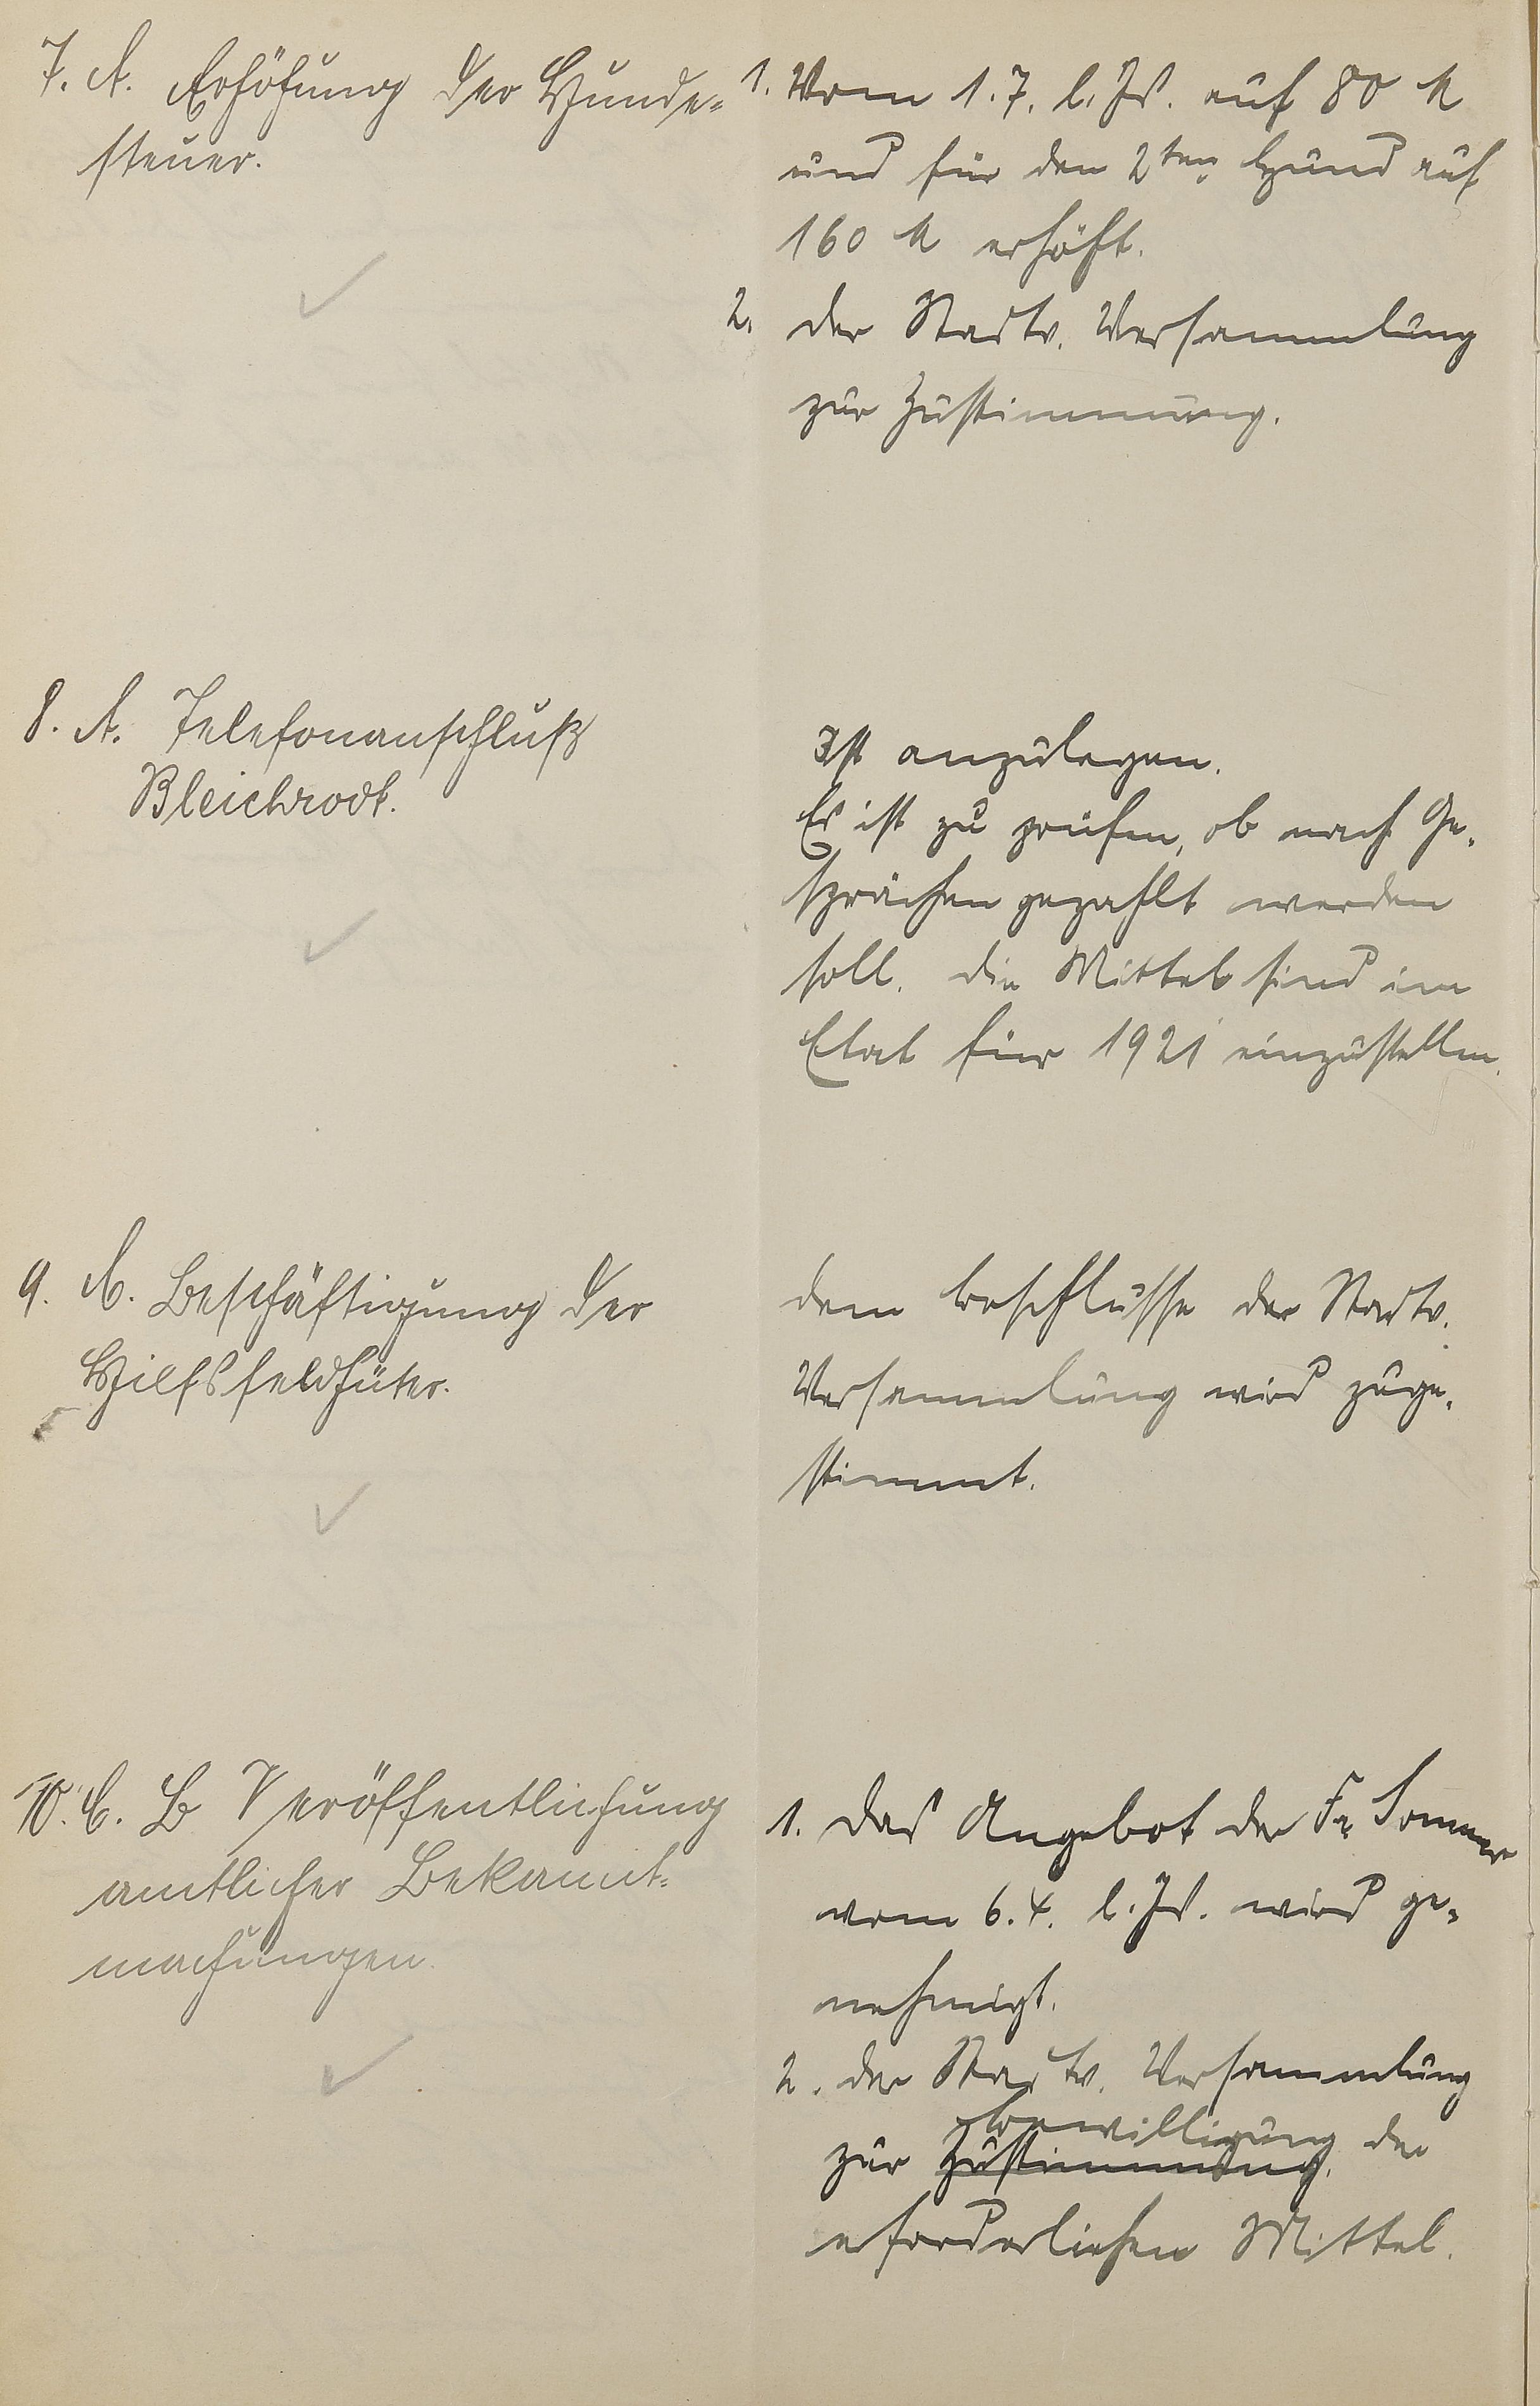 7. A. Erhöhung der Hunde-
steuer.
1. Vom 1.7. l. Js. auf 80 M
und für den 2ten Hund auf
160 M erhöht.
2. der Stadtv. Versammlung
zur Zustimmung.
8. A. Telefonanschluß
Bleichrodt.
Ist anzulegen.
Es ist zu prüfen, ob nach Ge-
sprächen gezahlt werden
soll. die Mittel sind im
Etat für 1921 einzustellen.
9. A. Beschäftigung der
Hilfsfeldhüter.
dem Beschlusse der Stadtv.
Versammlung wird zuge-
stimmt.
10. C. B Veröffentlichung
amtlicher Bekannt-
machungen.
1. das Angebot der Fa Sommer
vom 6.4. l. Js. wird ge-
nehmigt.
2. der Stadtv. Versammlung
bewilligung der
zur Zustimmung.
erforderlichen Mittel.